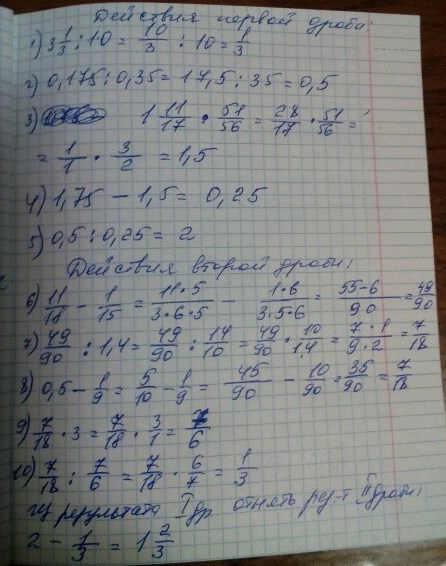 Действия первой дроби:
1) 3 1/3 : 10 = 10/3 : 10 = 1/3
2) 0,175 : 0,35 = 17,5 : 35 = 0,5
3) 1 11/17 · 51/56 = 28/17 · 51/56 =
= 1/1 · 3/2 = 1,5
4) 1,75 - 1,5 = 0,25
5) 0,5 : 0,25 = 2
Действия второй дроби:
6) 11/18 - 1/15 = 11·5/3·6·5 - 1·6/3·5·6 = 55-6/90 = 49/90
7) 49/90 : 1,4 = 49/90 : 14/10 = 49/90 · 10/14 = 7·1/9·2 = 7/18
8) 0,5 - 1/9 = 5/10 - 1/9 = 45/90 - 10/90 = 35/90 = 7/18
9) 7/18 · 3 = 7/18 · 3/1 = 7/6
10) 7/18 : 7/6 = 7/18 · 6/7 = 1/3
Из результата I др. отнять рез-т II дроби:
2 - 1/3 = 1 2/3